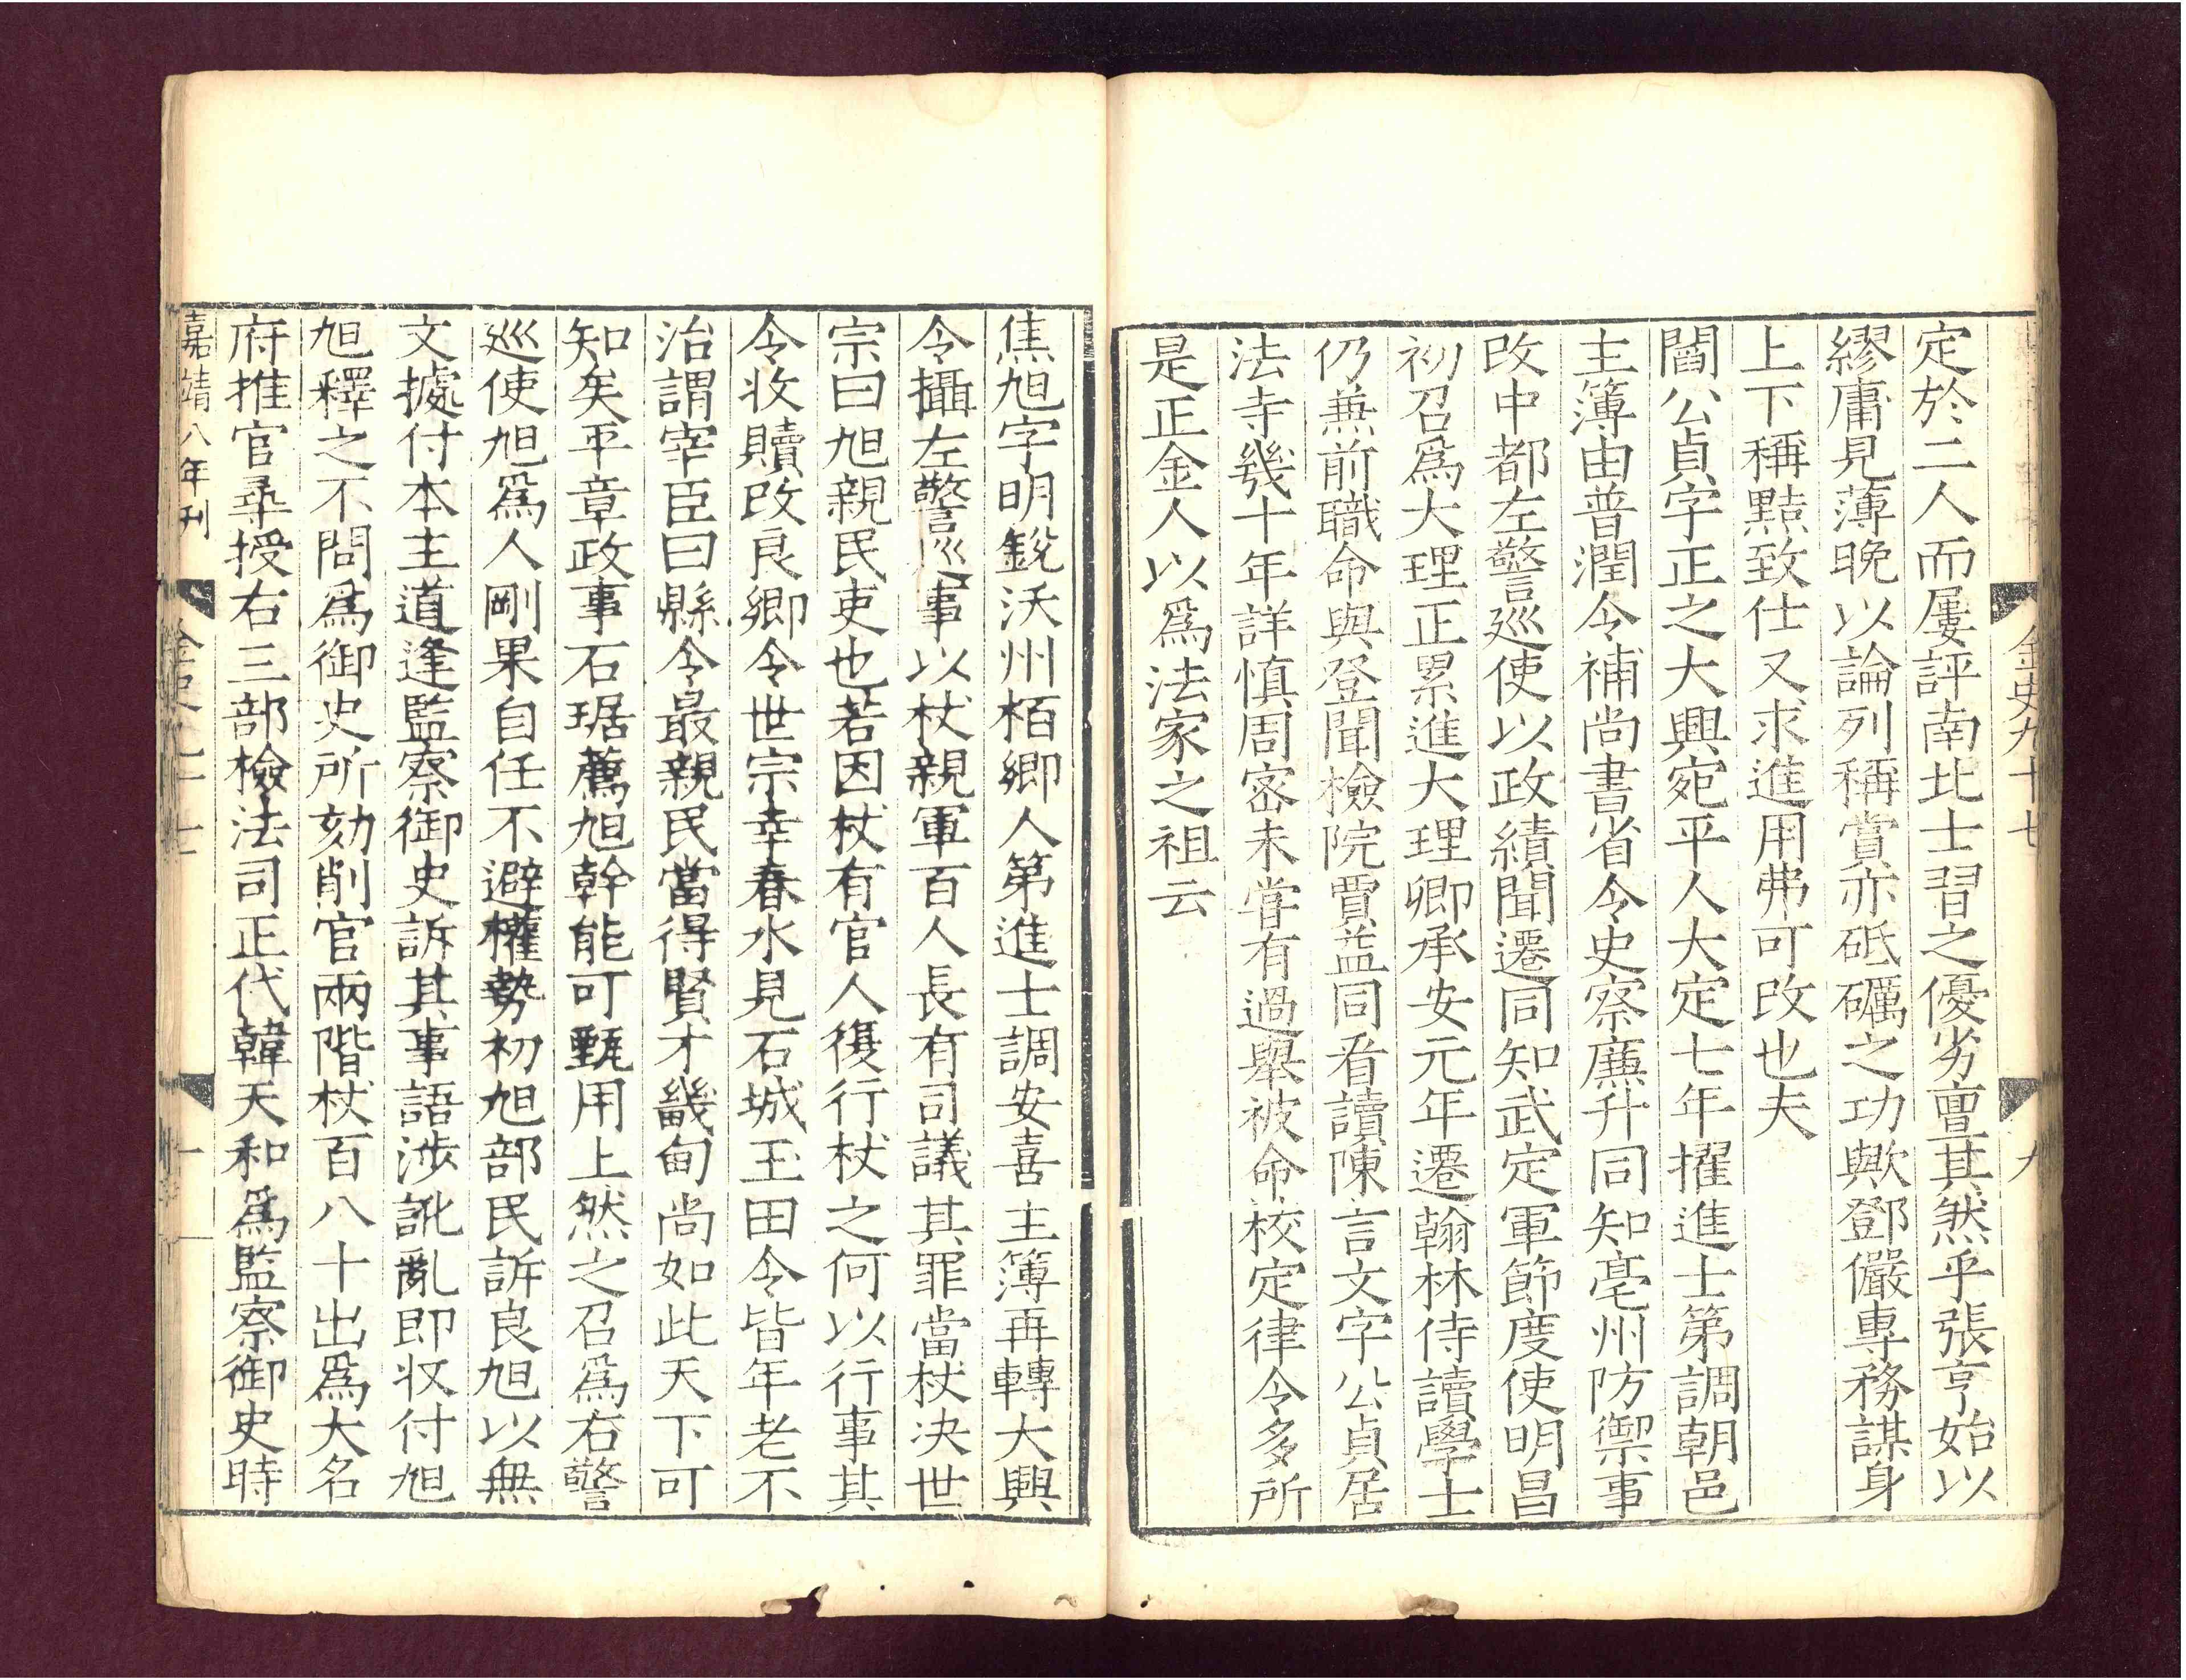 金史九十七
九
定於二人而屢評南北士習之優劣亶其然乎張亨始以
繆庸見薄晚以論列稱賞亦砥礪之功歟鄧儼專務謀身
上下稱黠致仕又求進用弗可改也夫
閻公貞字正之大興宛平人大定七年擢進士第調朝邑
主簿由普潤令補尚書省令史察廉升同知亳州防禦事
改中都左警巡使以政績聞遷同知武定軍節度使明昌
初召爲大理正累進大理卿承安元年遷翰林侍讀學士
仍兼前職命與登聞檢院賈益同看讀陳言文字公貞居
法寺幾十年詳慎周密未嘗有過舉被命校定律令多所
是正金人以爲法家之祖云
焦旭字明鋭沃州栢鄉人第進士調安喜主簿再轉大興
令攝左警廵事以杖親軍百人長有司議其罪當杖决世
宗曰旭親民吏也若因杖有官人復行杖之何以行事其
令收贖改良鄉令世宗幸春水見石城玉田令皆年老不
治謂宰臣曰縣令最親民當得賢才畿甸尚如此天下可
知矣平章政事石琚薦旭幹能可甄用上然之召爲右警
巡使旭爲人剛果自任不避權勢初旭部民訴良旭以無
文據付本主道逢監察御史訴其事語涉訛亂即收付旭
旭釋之不問爲御史所劾削官兩階杖百八十出爲大名
府推官尋授右三部檢法司正代韓天和爲監察御史時
嘉靖八年刊
金史九十七
十